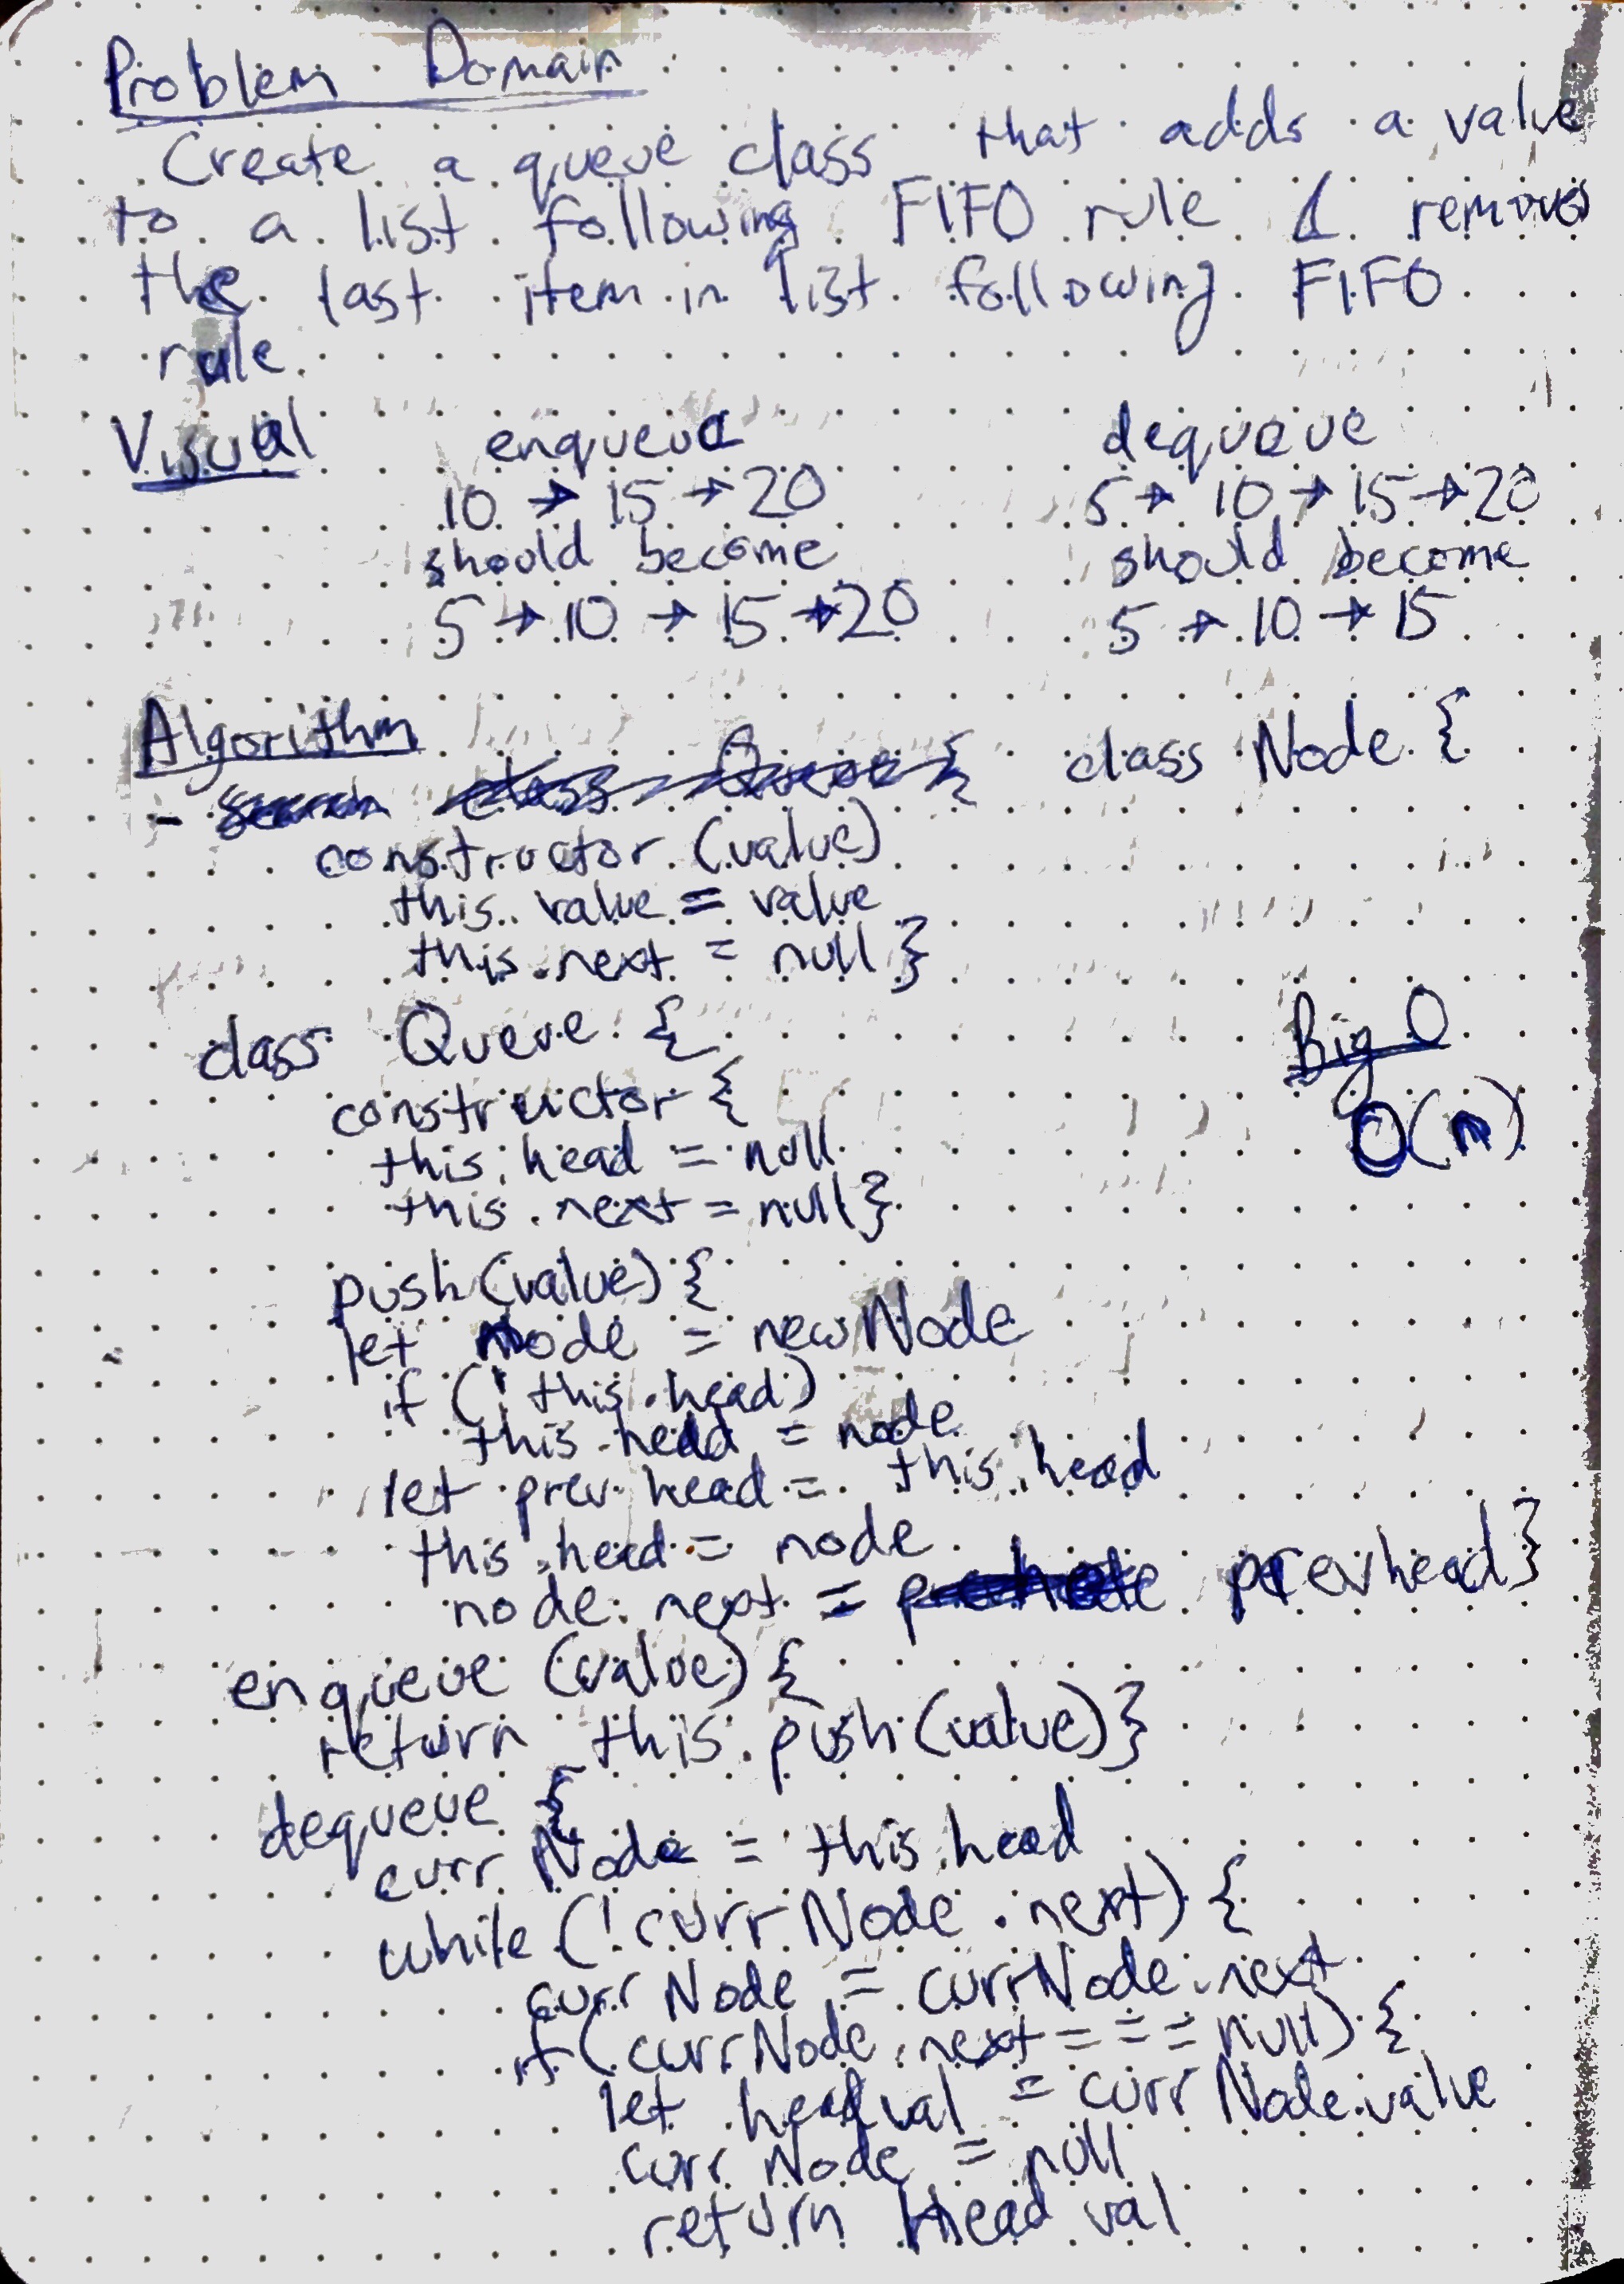 Problem Domain
Create a queue class that adds a value
to a list following FIFO rule & removes
the last item in list following FIFO
rule.
Visual enqueue dequeue
10 → 15 → 20 5 → 10 → 15 → 20
should become should become
5 → 10 → 15 → 20 5 → 10 → 15
Algorithm
- search class Queue { class Node {
constructor (value)
this.value = value
this.next = null }
class Queue { Big O
constructor { O(n)
this.head = null
this.next = null}
push(value) {
let node = new Node
if (! this.head)
this.head = node
let prev head = this.head
this.head = node
node.next = prevhead}
enqueue (value) {
return this.push(value)}
dequeue {
curr Node = this.head
while (! currNode.next) {
curr Node = currNode.next
if (currNode.next === null) {
let headval = curr Node.value
curr Node = null
return Head val